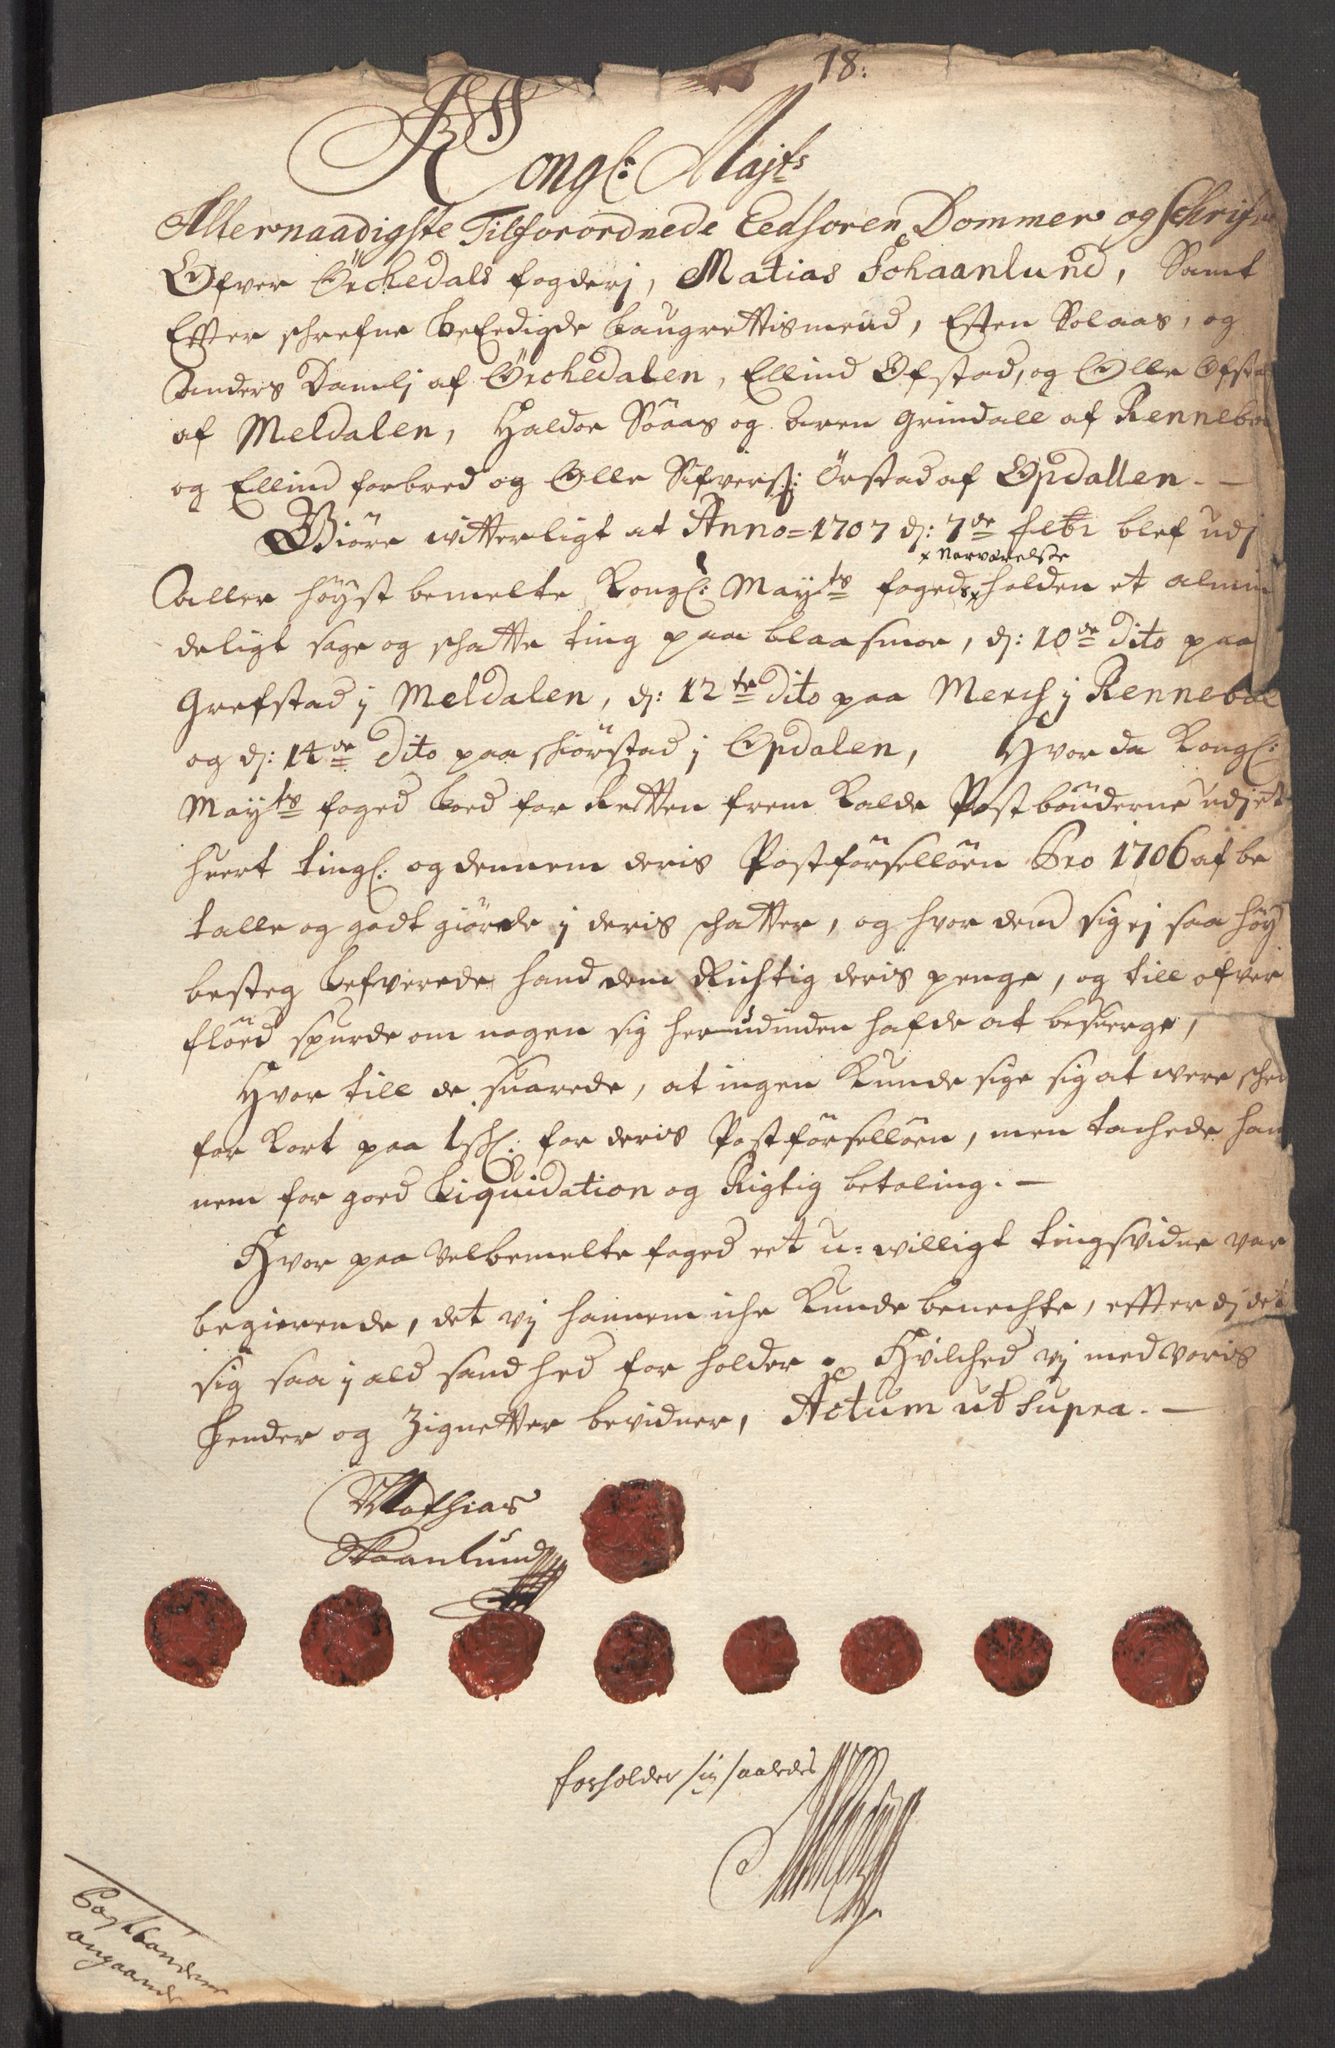 18:
Kongl: Majts
Allernaadigste Tilforordnede Eedsoren Dommer og Schrifver
Ofver Örchedals fogderj, Matias Schaanlund, Samt
Effter schrefne beEedigde Laugrettismend, Esten Solaas, og
Anders Damlj af Örchedalen, Ellind Ofstad, og Olle Ofstad
af Meldalen, Haldor Söaas og Aren Grindall af Rennebo
og Ellind forbred og Olle Sifvers: Örstad af Opdallen. —
Giöre witterligt at Anno = 1707 d: 7de febr blef udj
aller höyst bemelte Kongl: Mayts fogeds x holden et almin
x Nerværelse
deligt sage og schatte ting paa blaasmoe, d: 10de dito paa
Grefstad j Meldalen, d: 12te dito paa Merch j Rennebo
og d: 14de dito paa schiörstad j Opdalen, Hvor da Kongl:
Mayts foged loed for Retten frem kalde Postbönderne udj et
huert tingl: og dennem deris Postförsellöen Pro 1706 af be
talle og godt giörde j deris schatter, og hvor dem sig ej saa höy
besteg lefverede hand dem Richtig deris penge, og till ofver
flöed spurde om nogen sig herudinden hafde at beswerge,
Hvor till de suarede, at ingen kunde sige sig at were scheed
for kort paa 1 sch: for deris Postförsellöen, men tachede han
nem for goed Liquidation og Rigtig betaling. —
Hvor paa Velbemelte foged eet u-willigt tingsvidne var
begierende, det vj hannem iche kunde benechte, effter dj det
sig saa j ald sandhed for holder. Hvilched vj med voris
hender og Zignetter bevidner, Actum ut supra. —
Mathias
Skaanlund
forholder sig saaledes
Postbönderne
angaaende